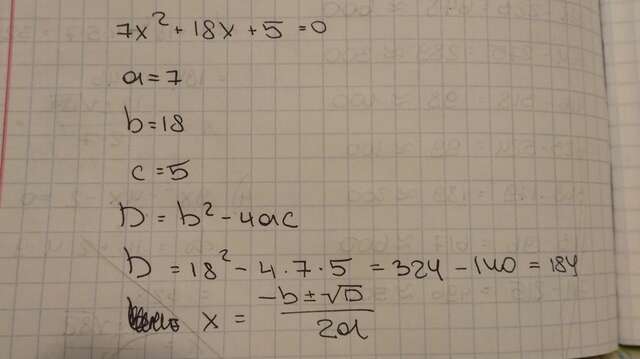 7x² + 18x + 5 = 0
a = 7
b = 18
c = 5
D = b² - 4ac
D = 18² - 4 · 7 · 5 = 324 - 140 = 184
x = -b ± √D / 2a